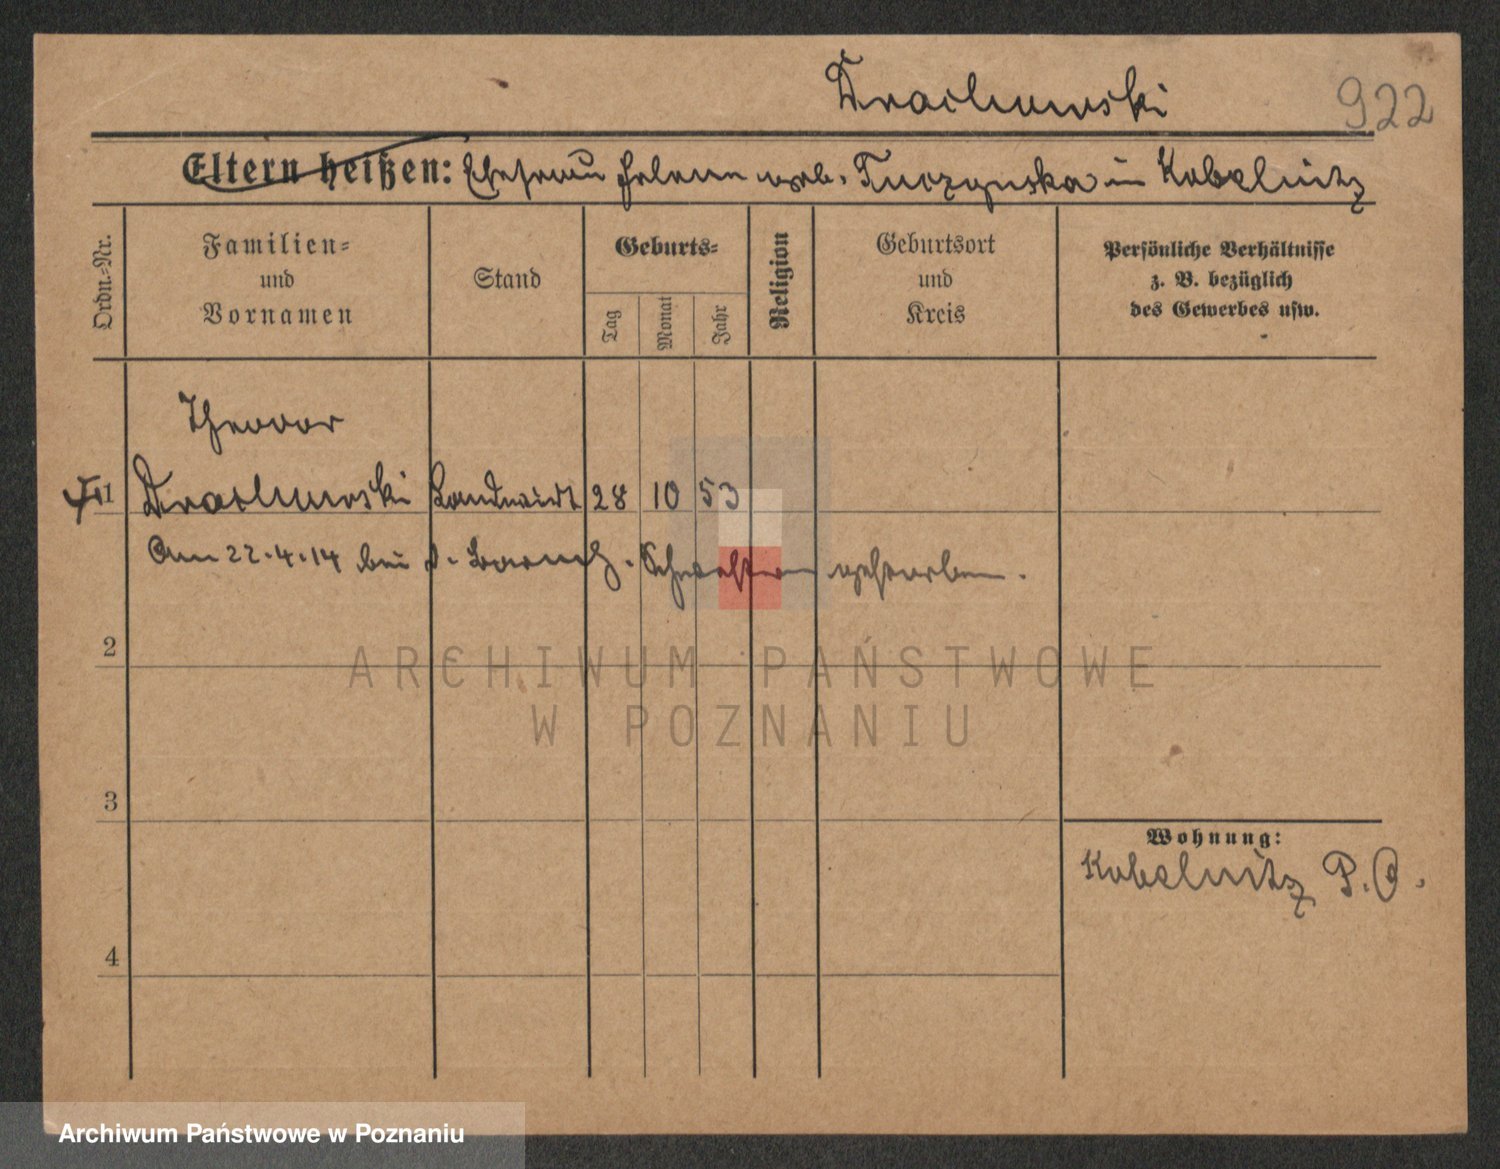 Drachowski
922
Eltern heißen: Ehefrau Helene geb. Turzynska in Kobelnitz
Ordn.-Nr.
Familien-
und
Vornamen
Stand
Geburts-
Tag
Monat
Jahr
Religion
Geburtsort
und
Kreis
Persönliche Verhältnisse
z. B. bezüglich
des Gewerbes usw.
Theodor
1 Landwirt 28 10 53
Am 22.4.14 bei gestorben.
2
ARCHIWUM PAŃSTWOWE
W POZNANIU
3
Wohnung:
Kobelnitz P.O.
4
Archiwum Państwowe w Poznaniu